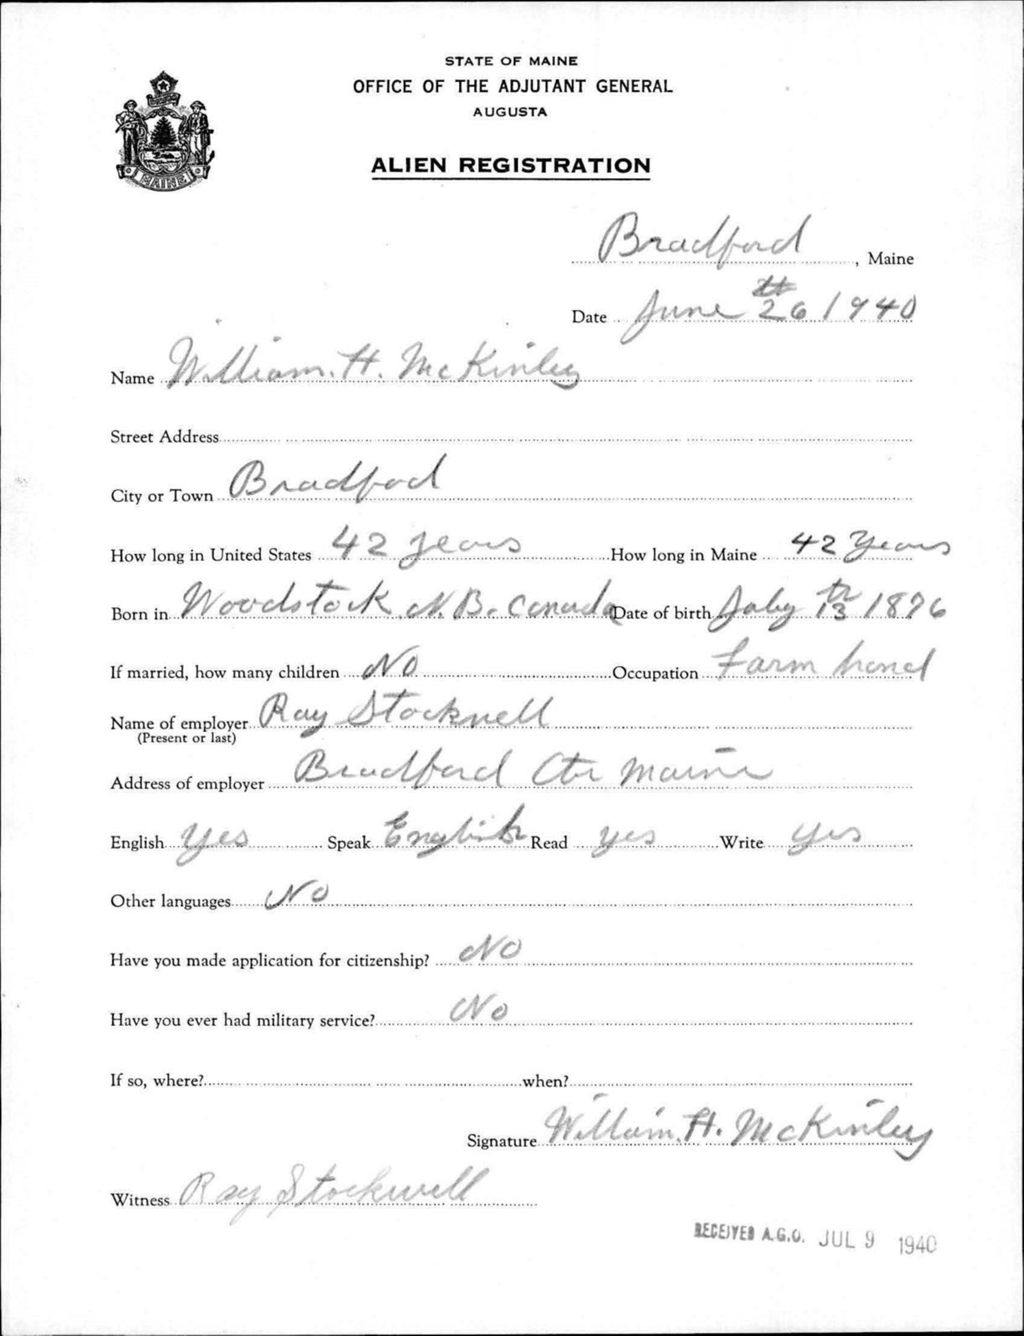 STATE OF MAINE
OFFICE OF THE ADJUTANT GENERAL
AUGUSTA
ALIEN REGISTRATION
MAINE
Bradford, Maine
Date June 26th 1940
Name William. H. McKinley
Street Address
City or Town Bradfod
How long in United States 42 years How long in Maine 42 Years
Born in Woodstock N. B. Canada Date of birth July 13th 1876
If married, how many children No Occupation Farm hand
Name of employer Ray Stockwell
(Present or last)
Address of employer Bradford Ctr Maine
English Yes Speak English Read yes Write yes
Other languages No
Have you made application for citizenship? No
Have you ever had military service? No
If so, where? when?
Signature William. H. McKinley
Witness Ray Stockwell
RECEIVED A.G.O. JUL 9 1940